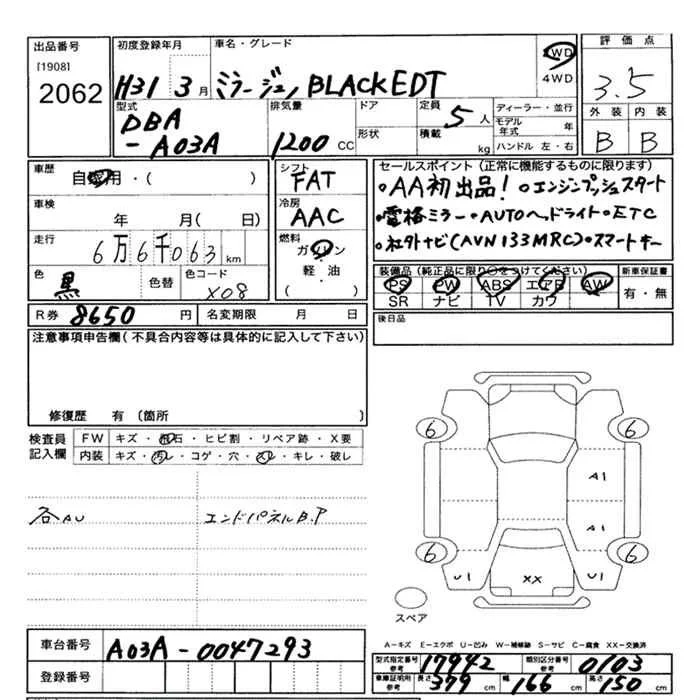 出品番号 初度登録年月 車名・グレード 評価点
[1908] 2WD
2062 H31 3月 ミラージュ BLACKEDT 4WD 3.5
型式 排気量 ドア 定員 5人 ディーラー・並行 外装 内装
DBA モデル年式 年 B B
-A03A 1200cc 形状 積載 kg ハンドル 左・右
車歴 自家用・( ) シフト FAT セールスポイント (正常に機能するものに限ります)
車検 年 月( 日) 冷房 AAC ・AA初出品! ・エンジンプッシュスタート
・電格ミラー・AUTOヘッドライト・ETC
走行 6万6千063km 燃料 ガソリン ・社外ナビ(AVN133MRC)・スマートキー
軽・油
色 黒 色替 色コード X08 ( ) 装備品(純正品に限り○をつけてください) 新車保証書
PS PW ABS エアB AW 有・無
SR ナビ TV カワ
R券 8650円 名変期限 月 日 後日品
注意事項申告欄(不具合内容等は具体的に記入して下さい)
修復歴 有(箇所 )
検査員 FW キズ・飛石・ヒビ割・リペア跡・X要
記入欄 内装 キズ・汚レ・コゲ・穴・スレ・キレ・破レ
6 6
A1
各AU エンドパネルB.P
A1
6 6
U1 XX U1
スペア
車台番号 A03A-0047293
A-キズ E-エクボ U-凹み W-補修跡 S-サビ C-腐食 XX-交換済
登録番号 型式指定番号 参考 17942 類別区分番号 参考 0103
車庫証明用 参考 長さ 379cm 幅 166cm 高さ 150cm